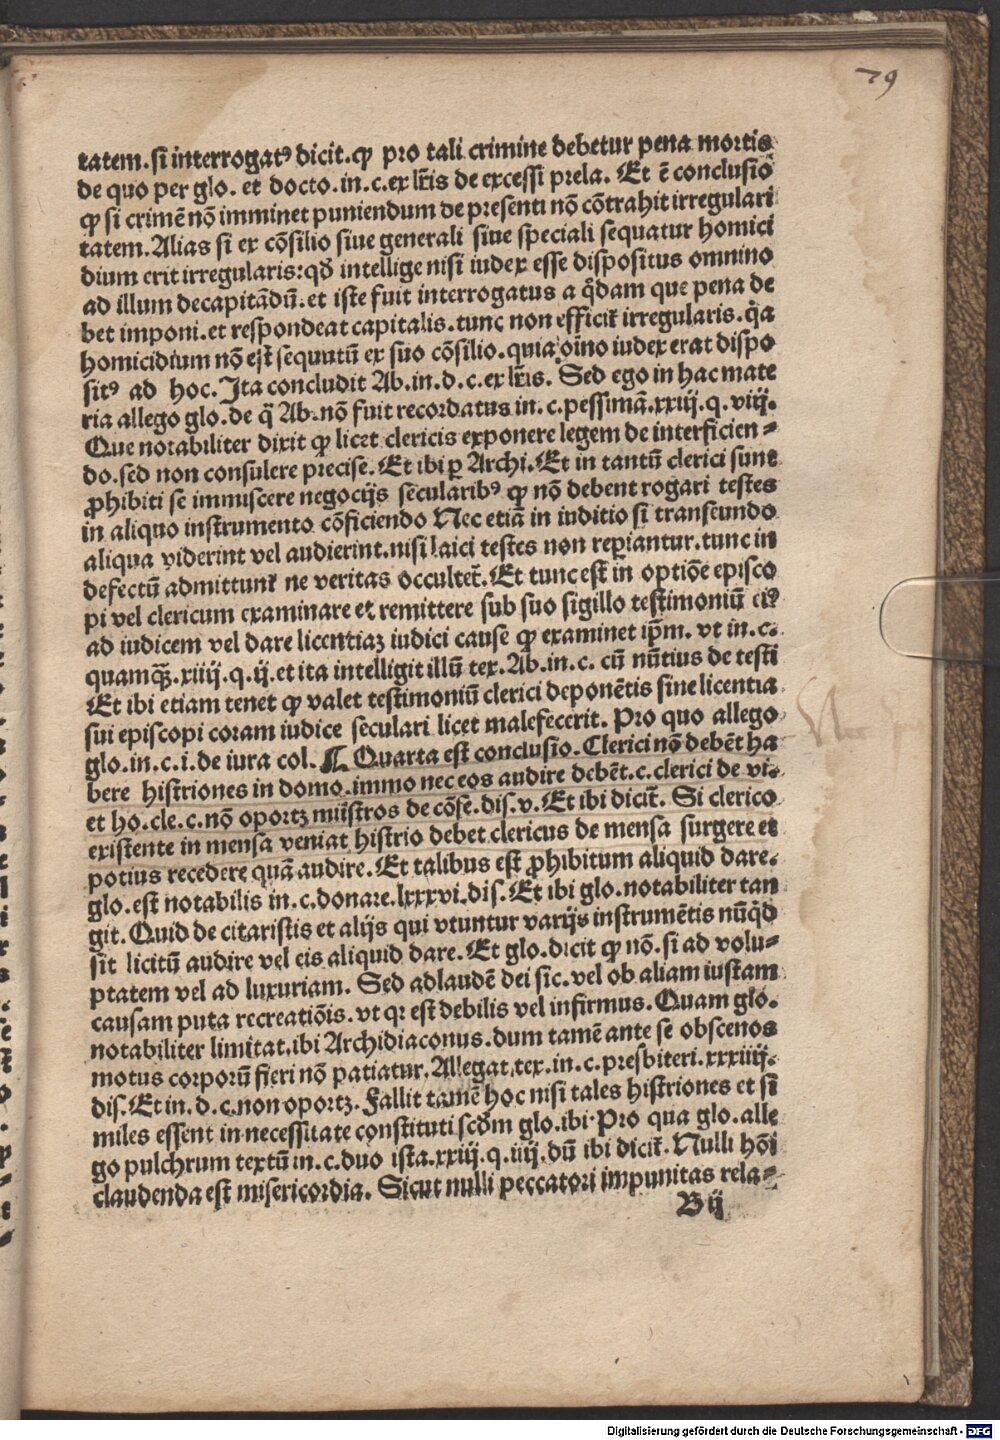 79
tatem.si interrogatꝰ dicit.ꝙ pro tali crimine debetur pena mortis
de quo per glo. et docto.in.c.ex lr̃is de excessi prela. Et ē conclusio
ꝙ si crimē nō imminet puniendum de presenti nō cōtrahit irregulari
tatem.Alias si ex cōsilio siue generali siue speciali sequatur homici
dium erit irregularis:qď intellige nisi iudex esse dispositus omnino
ad illum decapitādū.et iste fuit interrogatus a q̄dam que pena de
bet imponi.et respondeat capitalis.tunc non efficit̃ irregularis.q̄a
homicidium nō est sequutū ex suo cōsilio.quia oīno iudex erat dispo
sitꝰ ad hoc. Ita concludit Ab.in.d.c.ex lr̃is. Sed ego in hac mate
ria allego glo.de q̄ Ab.nō fuit recordatus in.c.pessimā.xxiij.q.viij.
Que notabiliter dixit ꝙ licet clericis exponere legem de interficien⸗
do.sed non consulere precise.Et ibi ꝑ Archi.Et in tantū clerici sunt
ꝓhibiti se immiscere negocijs secularibꝰ ꝙ nō debent rogari testes
in aliquo instrumento cōficiendo Nec etiā in iuditio si transeundo
aliqua viderint vel audierint.nisi laici testes non reꝑiantur.tunc in
defectū admittunt̃ ne veritas occultet̃.Et tunc est in optiōe episco
pi vel clericum examinare et remittere sub suo sigillo testimoniū eiꝰ
ad iudicem vel dare licentiaꝫ iudici cause ꝙ examinet ip̄m. vt in.c.
quamqꝫ.xiiij.q.ij.et ita intelligit illū tex.Ab.in.c. cū nūtius de testi
Et ibi etiam tenet ꝙ valet testimoniū clerici deponētis sine licentia
sui episcopi coram iudice seculari licet malefecerit. Pro quo allego
glo.in.c.i.de iura col. ¶ Quarta est conclusio.Clerici nō debēt ha
bere histriones in domo.immo nec eos audire debēt.c.clerici de vi⸗
et ho.cle.c.nō oportꝫ mīistros de cōse.dis.v.Et ibi dicit̃. Si clerico
existente in mensa veniat histrio debet clericus de mensa surgere et
potius recedere quā audire.Et talibus est ꝓhibitum aliquid dare.
glo.est notabilis in.c.donare.lxxxvi.dis.Et ibi glo.notabiliter tan
git.Quid de citaristis et alijs qui vtuntur varijs instrumētis nūq̄d
sit licitū audire vel eis aliquid dare.Et glo.dicit ꝙ nō.si ad volu⸗
ptatem vel ad luxuriam. Sed ad laudē dei sic.vel ob aliam iustam
causam puta recreatiōis.vt qꝛ est debilis vel infirmus.Quam glo.
notabiliter limitat.ibi Archidiaconus.dum tamē ante se obscenos
motus corporū fieri nō patiatur.Allegat.tex.in.c.presb̄iteri.xxxiiij.
dis.Et in.d.c.non oportꝫ. Fallit tamē hoc nisi tales histriones et si
miles essent in necessitate constituti scďm glo.ibi.Pro qua glo.alle
go pulchrum textū in.c.duo ista.xxiij.q.iiij.dū ibi dicit̃.Nulli hōi
claudenda est misericordia. Sicut nulli peccatori impunitas rela⸗
B ij
Digitalisierung gefördert durch die Deutsche Forschungsgemeinschaft - DFG